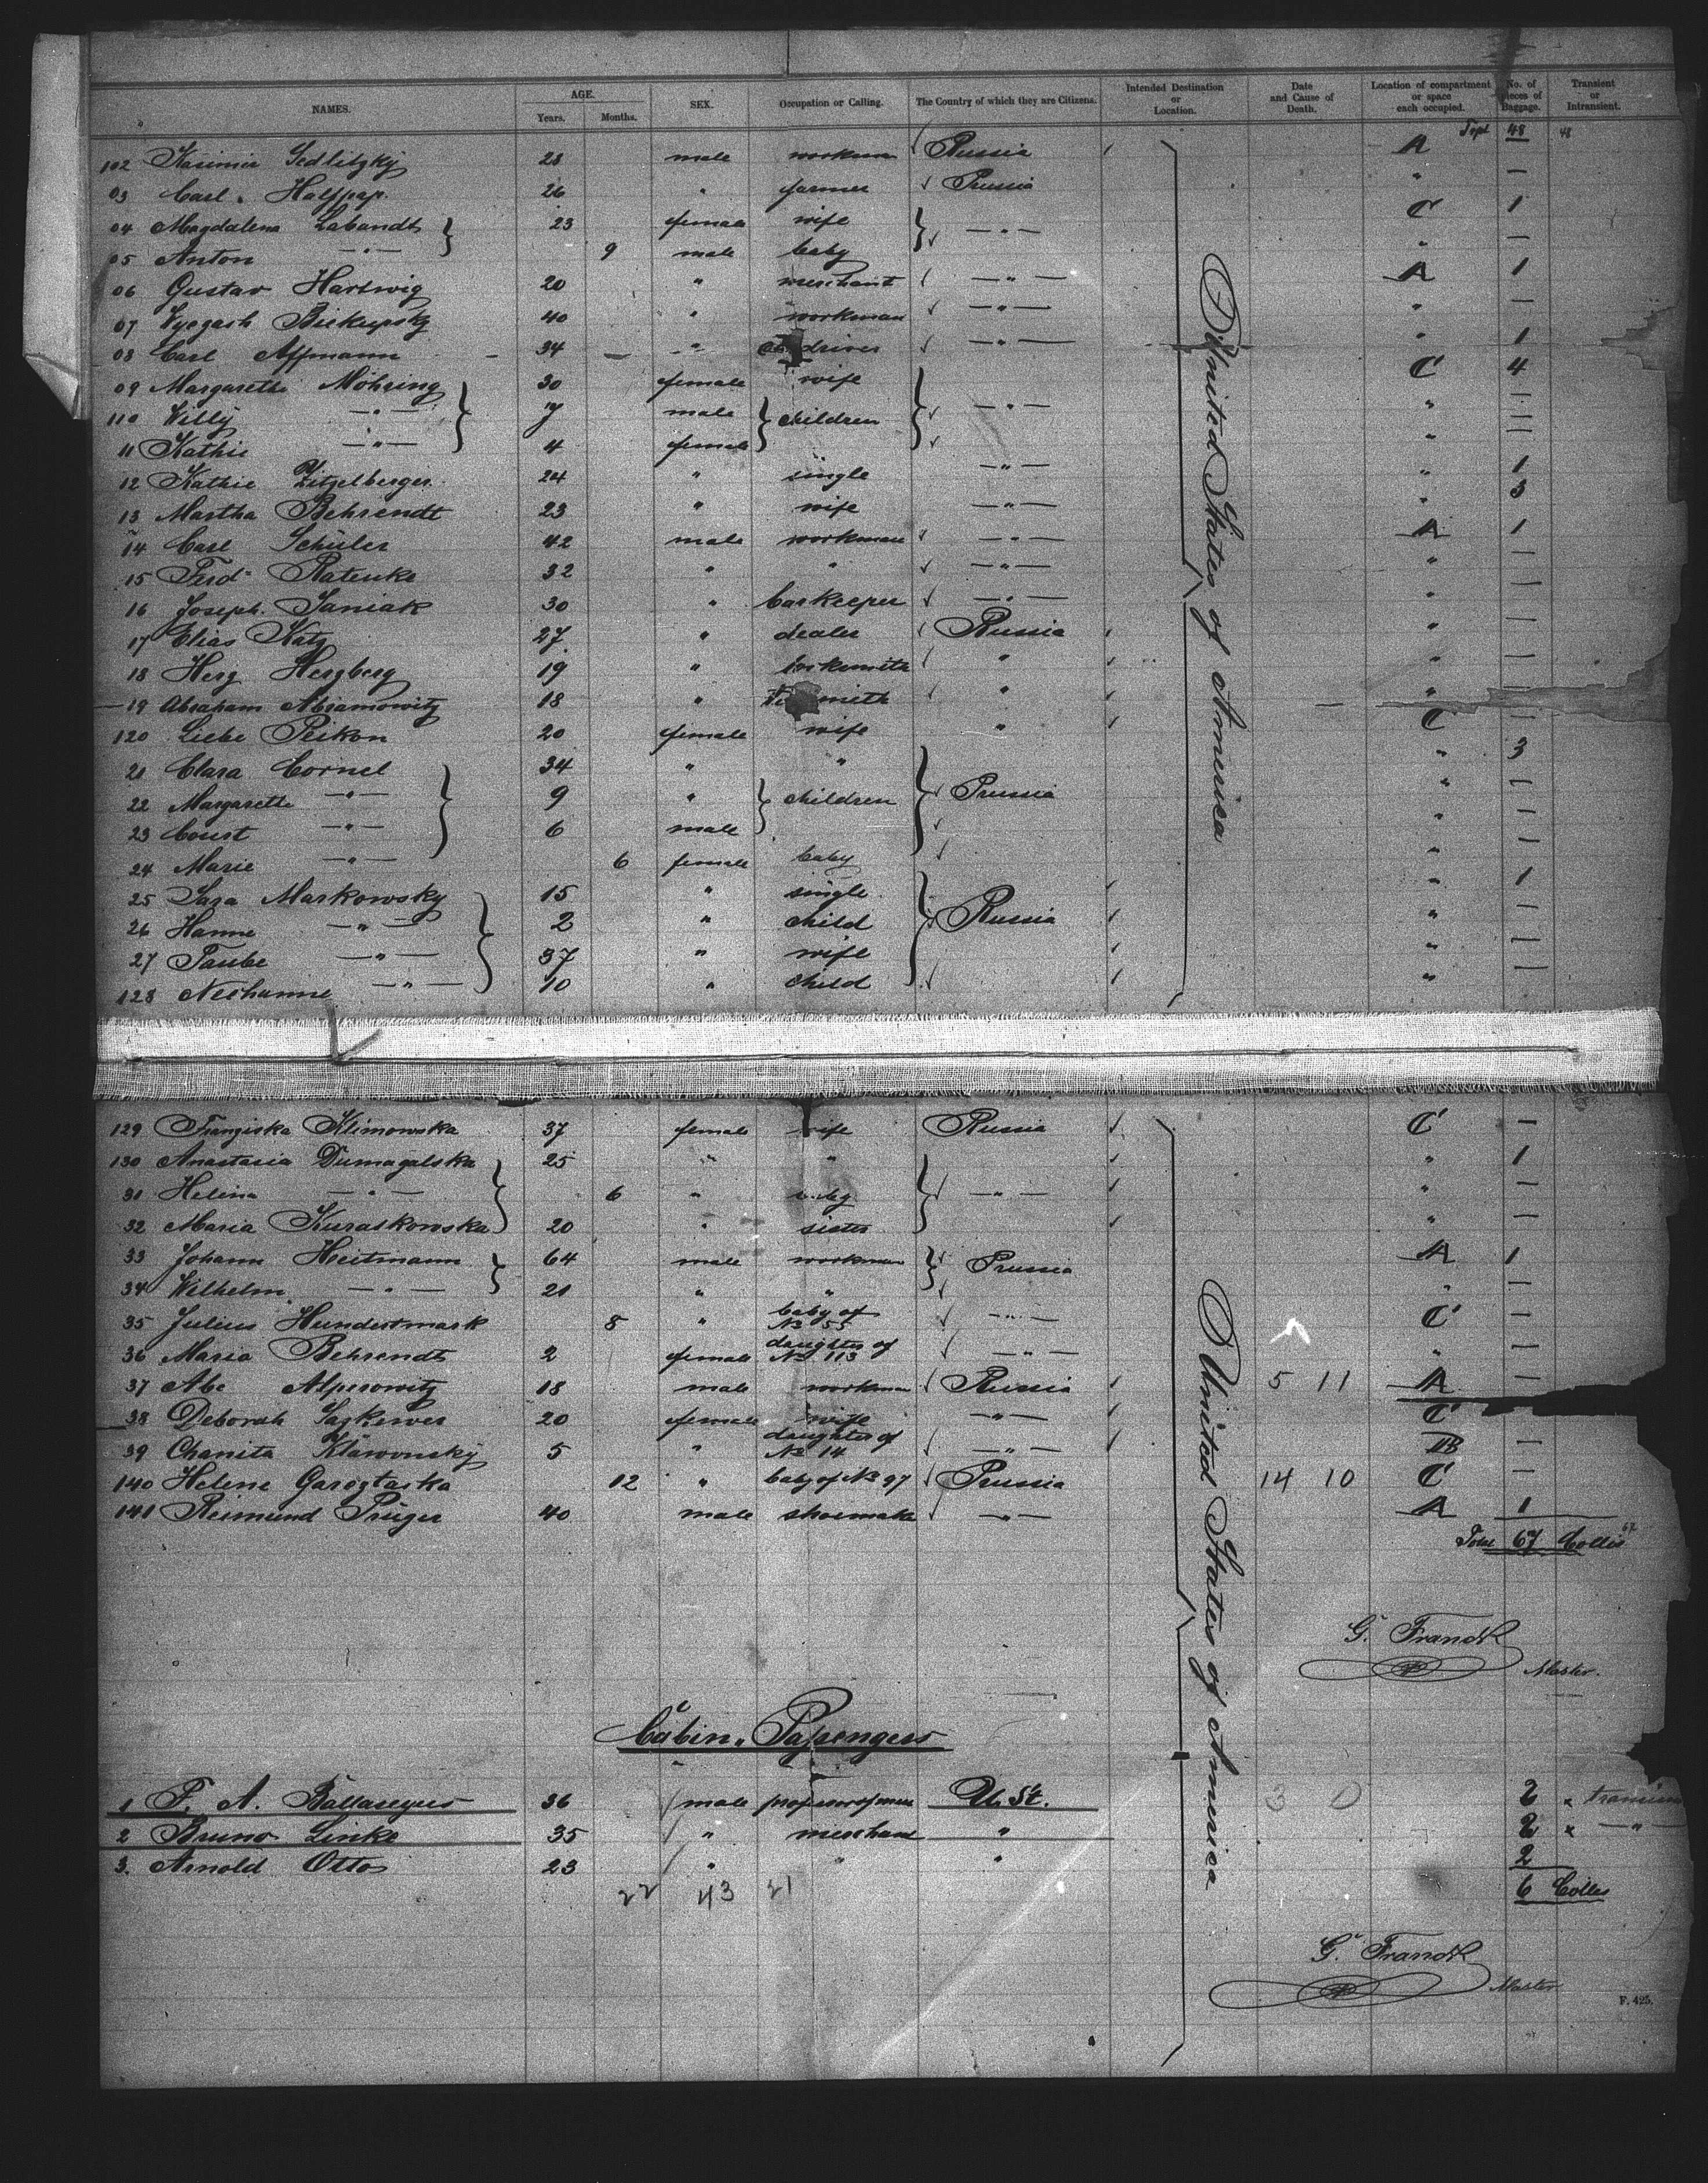 NAMES. AGE. Years. Months. SEX. Occupation or Calling. The Country of which they are Citizens. Intended Destination or Location. Date and Cause of Death. Location of compartment or space each occupied. No. of pieces of Baggage. Transient or Intransient.
48 48
102 Kasimir Sedlitzky 28 male workman Russia A —
03 Carl Halfpap. 26 " farmer Prussia " —
04 Magdalena Labandt 23 female wife —"— C 1
05 Anton —"— 9 male baby " —
06 Gustav Hartwig 20 " merchant —"— A 1
07 40 " workman —"— " —
08 Carl Affmann 34 — —"— driver —"— " 1
09 Margarethe Möhring 30 female wife C 4
110 Willy —"— 7 male children —"— " —
11 Kathie —"— 4 female " —
12 Kathie Zitzelberger 24 " single —"— " 1
13 Martha Behrendt 23 " wife —"— " 3
14 Carl Schüler 42 male workman —"— A 1
15 Ferd. Ratenke 32 " " —"— " —
16 Joseph Saniak 30 " barkeeper —"— " —
17 Elias Katz 27 " dealer Russia " —
18 Herz Herzberg 19 " locksmith " " —
19 Abraham Abramowitz 18 " smith " " —
120 Liebe Peikon 20 female wife " C —
21 Clara Cornel 34 " " " 3
22 Margarethe —"— 9 " children Prussia " —
23 —"— 6 male " —
24 Marie —"— 6 female baby " —
25 Sara Markowsky 15 " single " 1
26 Hanne —"— 2 " child Russia " —
27 Taube —"— 37 " wife " —
128 Nechanne —"— 10 " child " —
United States of America
129 Franziska Klimowska 37 female wife Russia C —
130 Anastasia Dumagalska 25 " " " 1
31 Helena —"— 6 " baby —"— " —
32 Maria Kuraskowska 20 " sister " —
33 Johann Heitmann 64 male workman Prussia A 1
34 Wilhelm —"— 21 " " " —
35 Julius Hundertmark 8 " baby of No 55 —"— C —
36 Maria Behrendt 2 female daughter of No 113 —"— " —
37 Abe Alperowitz 18 male workman Russia 5 11 A —
38 Deborah 20 female wife —"— C
39 Chanita Klawonsky 5 " daughter of No 14 —"— B —
140 Helene 12 " baby of No 97 Prussia 14 10 C —
141 Reimund Prüger 40 male shoemaker —"— A 1
Total 67 Collis
United States of America
G. Frandt
Master.
Cabin Passengers
1 P. A. 36 male U. St. 3 0 2 transient
2 Bruno Linke 35 " merchant " 2 —"—
3. Arnold Otto 23 " " " 2
22 43 21 6 Collis
G. Frandt
Master
F. 425.